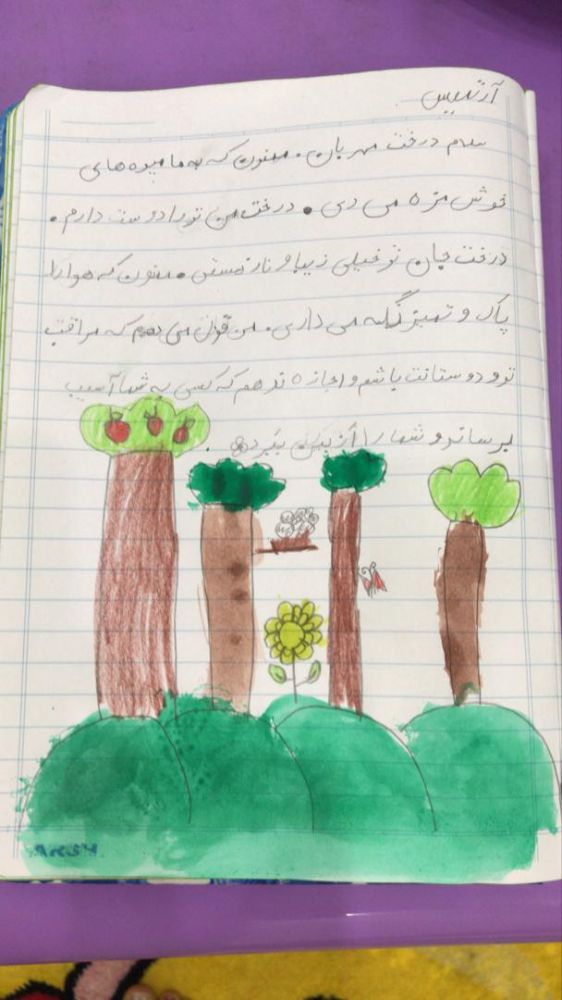 آرتمیس
سلام درخت مهربان. ممنون که به ما میوه های
خوش مزه می دی. درخت من تو را دوست دارم.
درخت جان تو خیلی زیبا و ناز هستی. ممنون که هوا را
پاک و تمیز نگه می داری. من قول می دهم که مراقب
تو و دوستانت باشم و اجازه ندهم که کسی به شما آسیب
برساند و شما را از بین ببرد.
ARSH